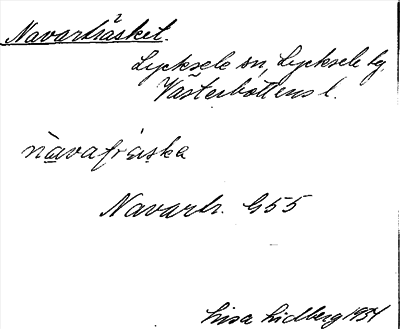 Navarträsket.
Lycksele sn, Lycksele lg.
Västerbottens l.
Navartr. G55
Lisa Lidberg 1934